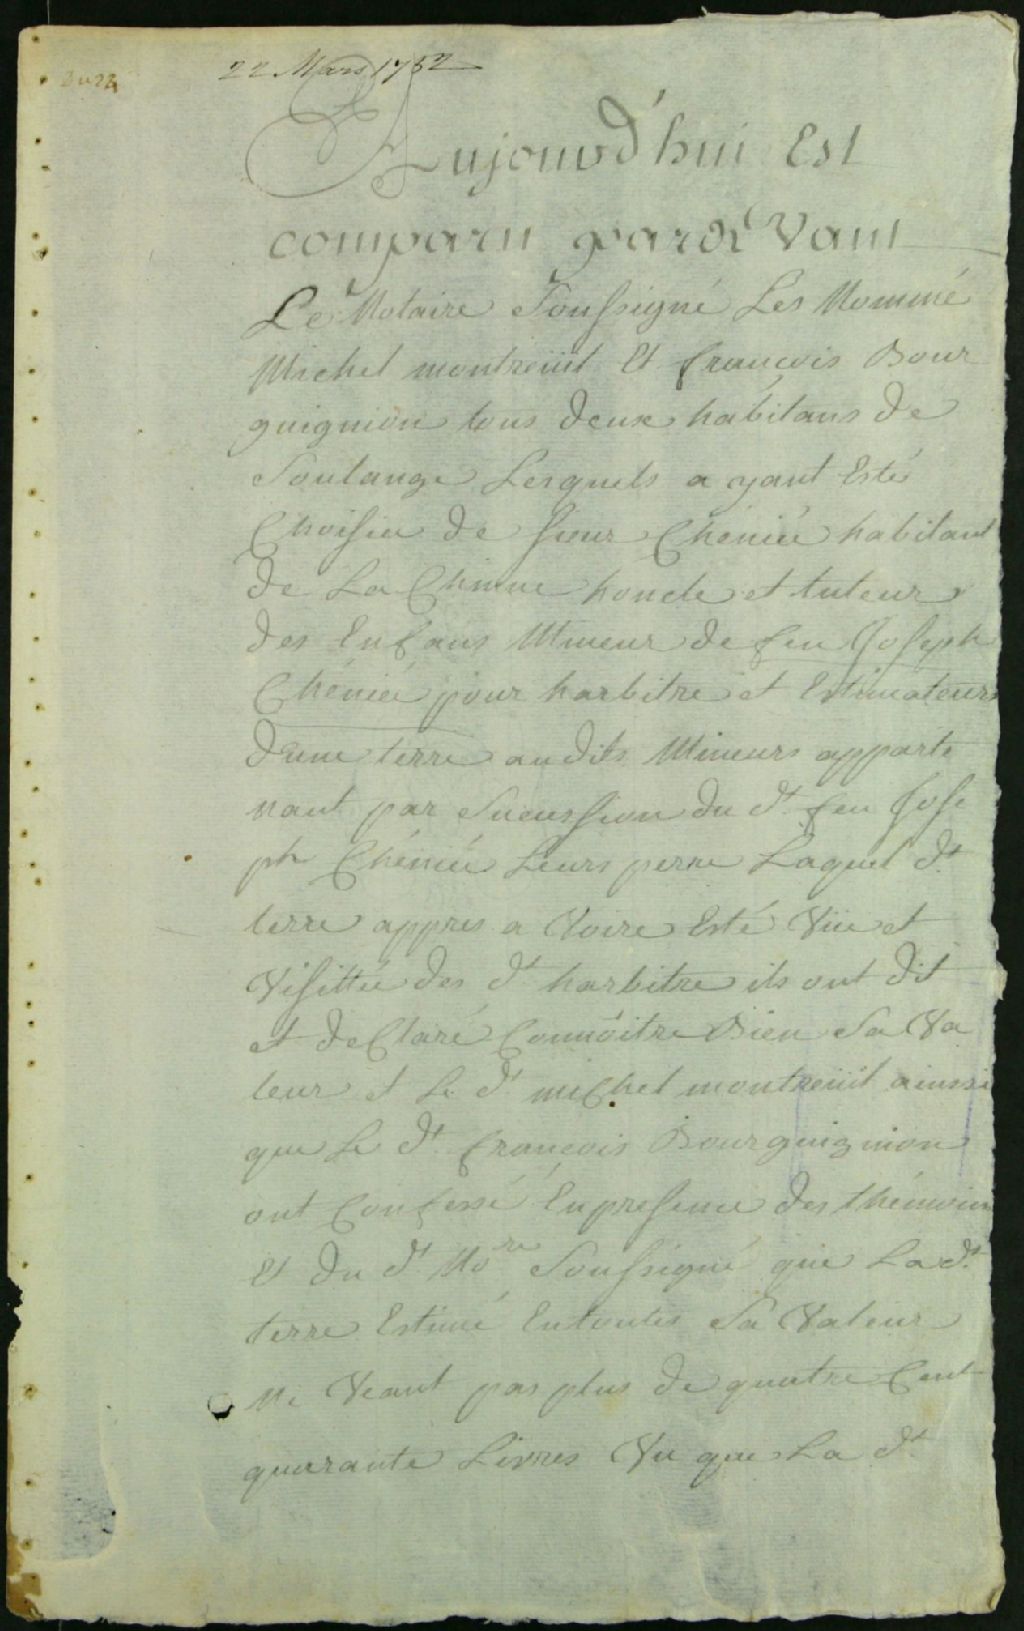 Du 22
22 Mars 1752
Aujourd'hui Est
comparu pardevant
Le Notaire Soussigné Les Nommé
Michel montreüil Et francois Bour
guignion tous deux habitans de
Soulange Lesquels a yant Esté
Choisiee de sieur Cheniée habitant
de La Chinne honcle et tuteur
des Enfans Mineur de feu Joseph
Cheniée pour harbitre et Estimateurs
d'une terre audits Mineurs apparte
nant par Sucession du dt feu Jose
ph Cheniée Leurs perre Laquel dt
terre appres a Voire Esté Vüe et
Visittée des dt harbitre ils ont dit
et declaré Connöitre Bien Sa Va
leur et Le dt michel montreüil ainssi
que Le dt francois Bourguignion
ont Confessé En presence des thémoin
Et du dt Nore Soussigné que La dt
terre Estimé En toutes Sa Valeur
Ne Veaut pas plus de quatre Cent
quarante Livres Vu que La dt